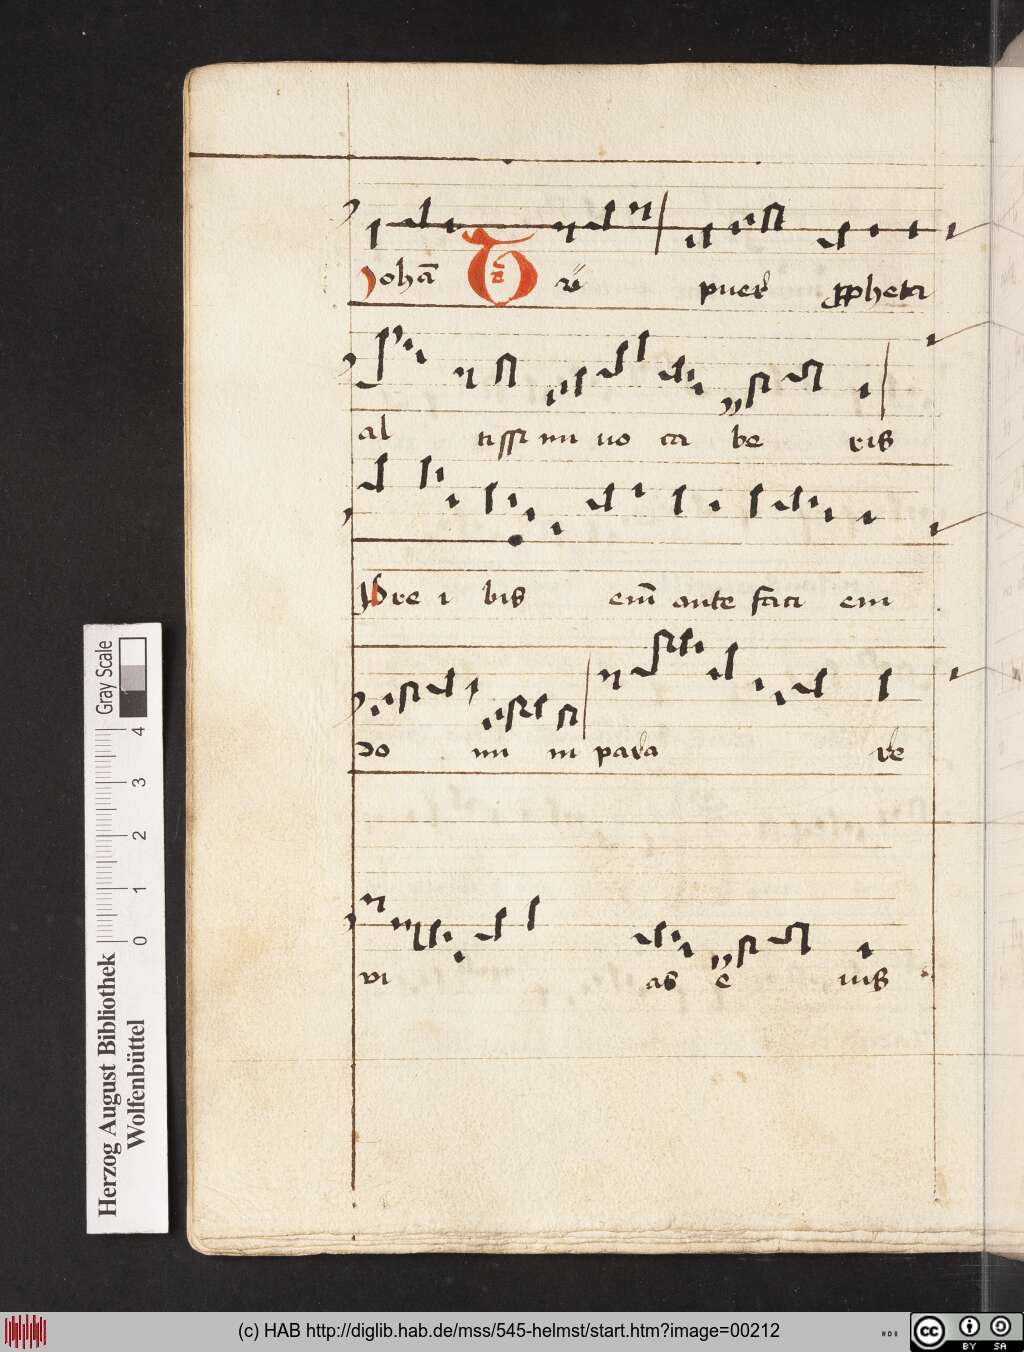 Johā Tu puer propheta
al tissi mi uo ca be ris
Pre i bis em̄ ante faci em
do mi ni para re
vi as e ius
Gray Scale
0 1 2 3 4
Herzog August Bibliothek
Wolfenbüttel
(c) HAB http://diglib.hab.de/mss/545-helmst/start.htm?image=00212
cc BY SA